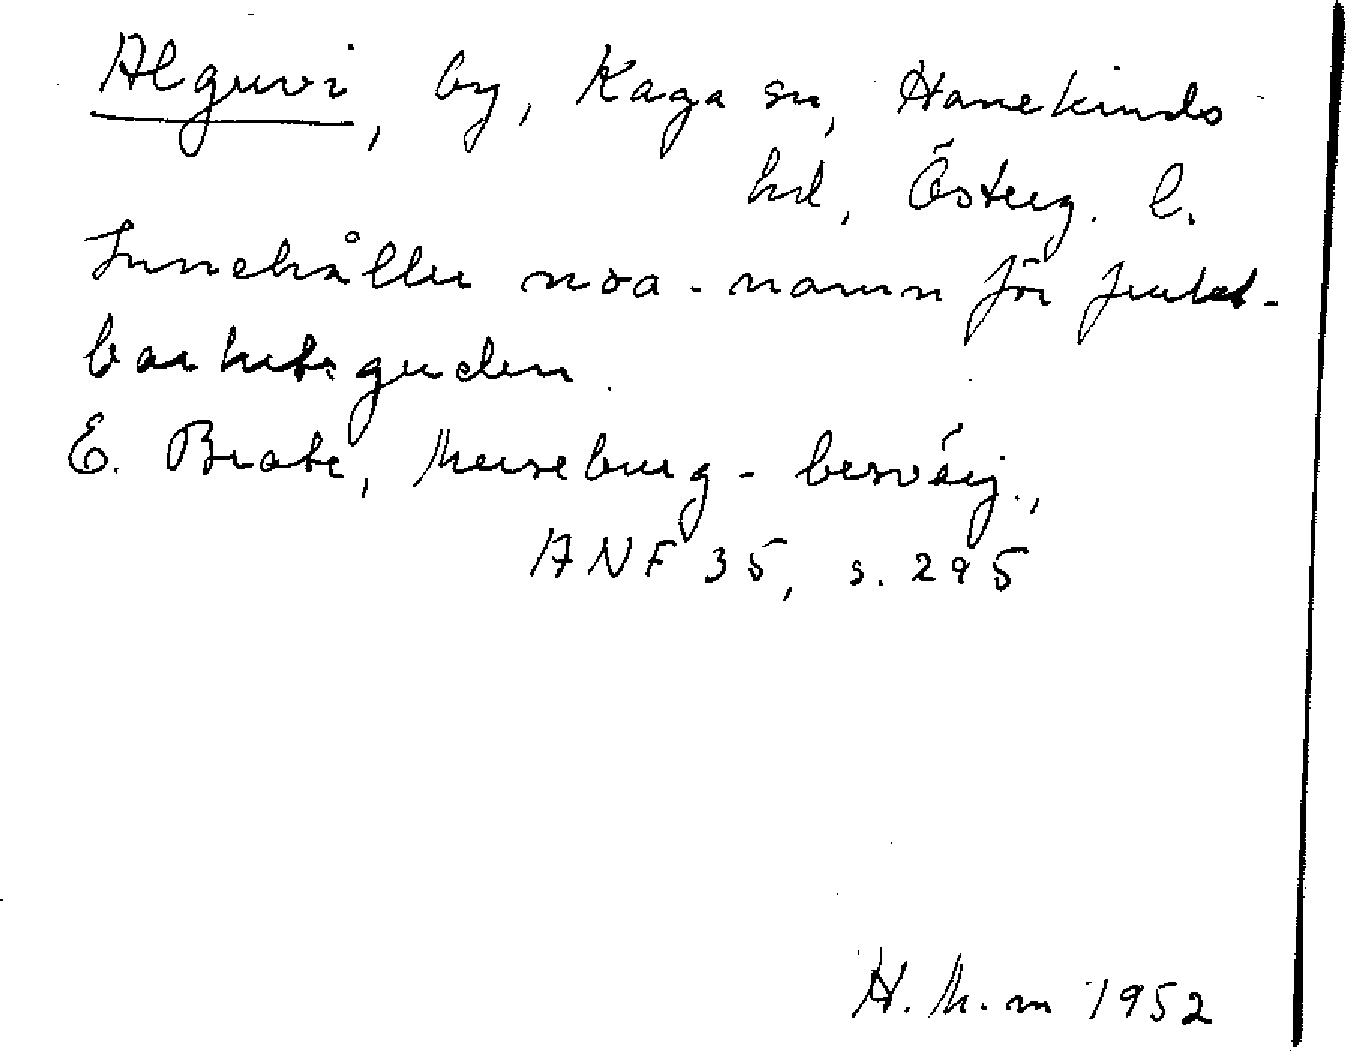 Alguvi, by, Kaga sn, Hanekinds
hd, Österg. l.
Innehåller noa-namn för frukt-
barhetsguden.
E. Brate, Merseburg-besvärj.,
ANF 35, s. 295
H. M. m 1952